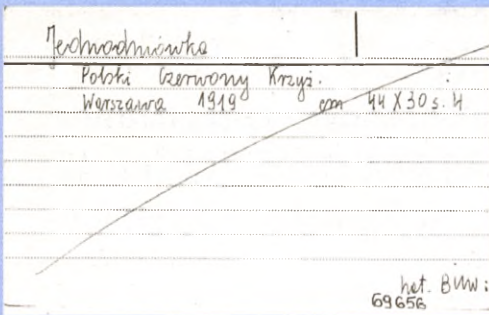 Jednodniówka
Polski Czerwony Krzyż.
Warszawa 1919 cm 44 X 30 s. 4
kat. BUW:
69656